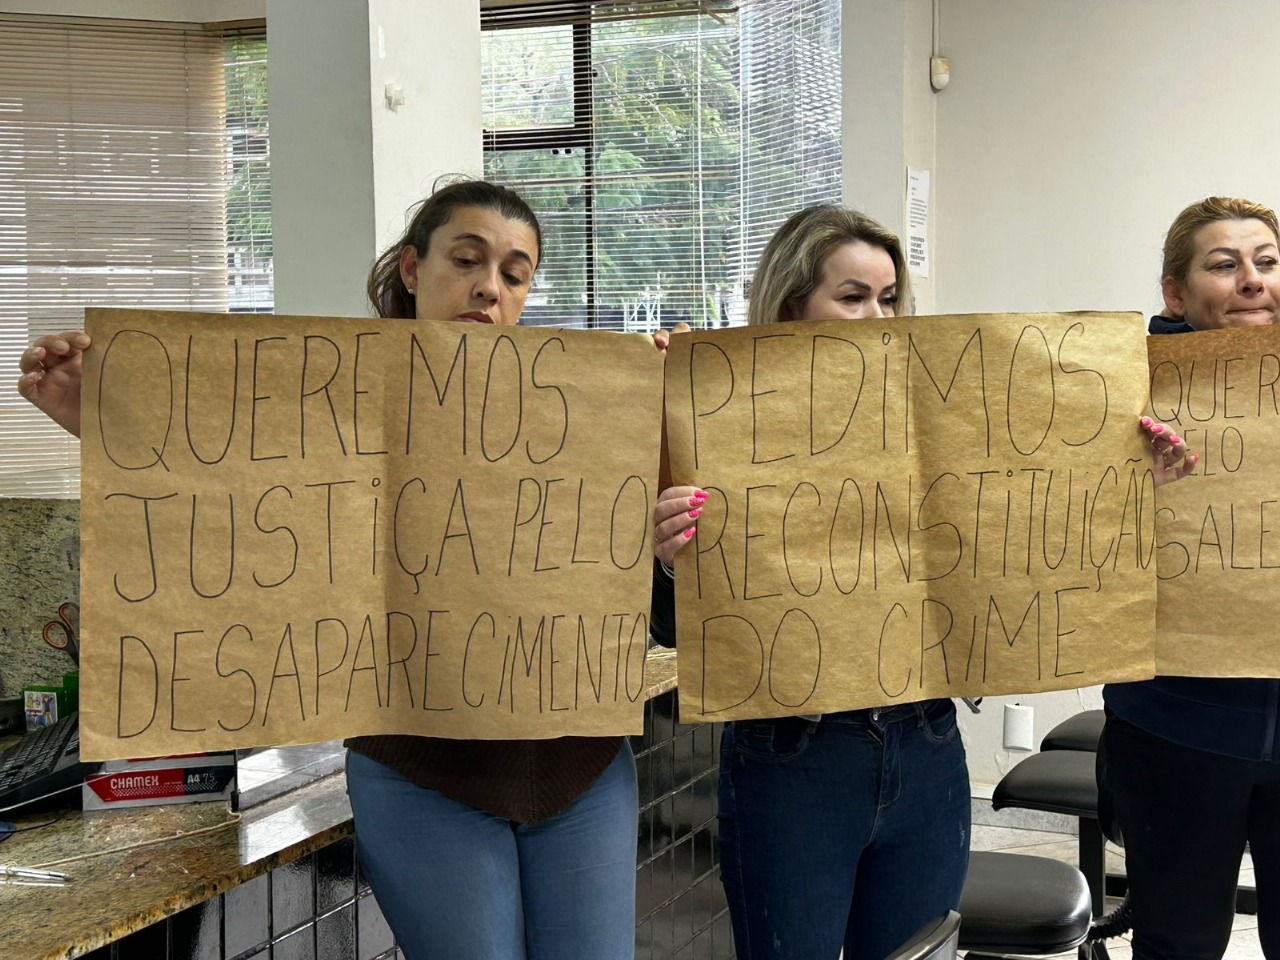 QUEREMOS
JUSTiÇA PELO
DESAPARECiMENTO
PEDiMOS
RECONSTiTUiÇÃO
DO CRiME
QUER
ELO
SALE
CHAMEX
A4 75